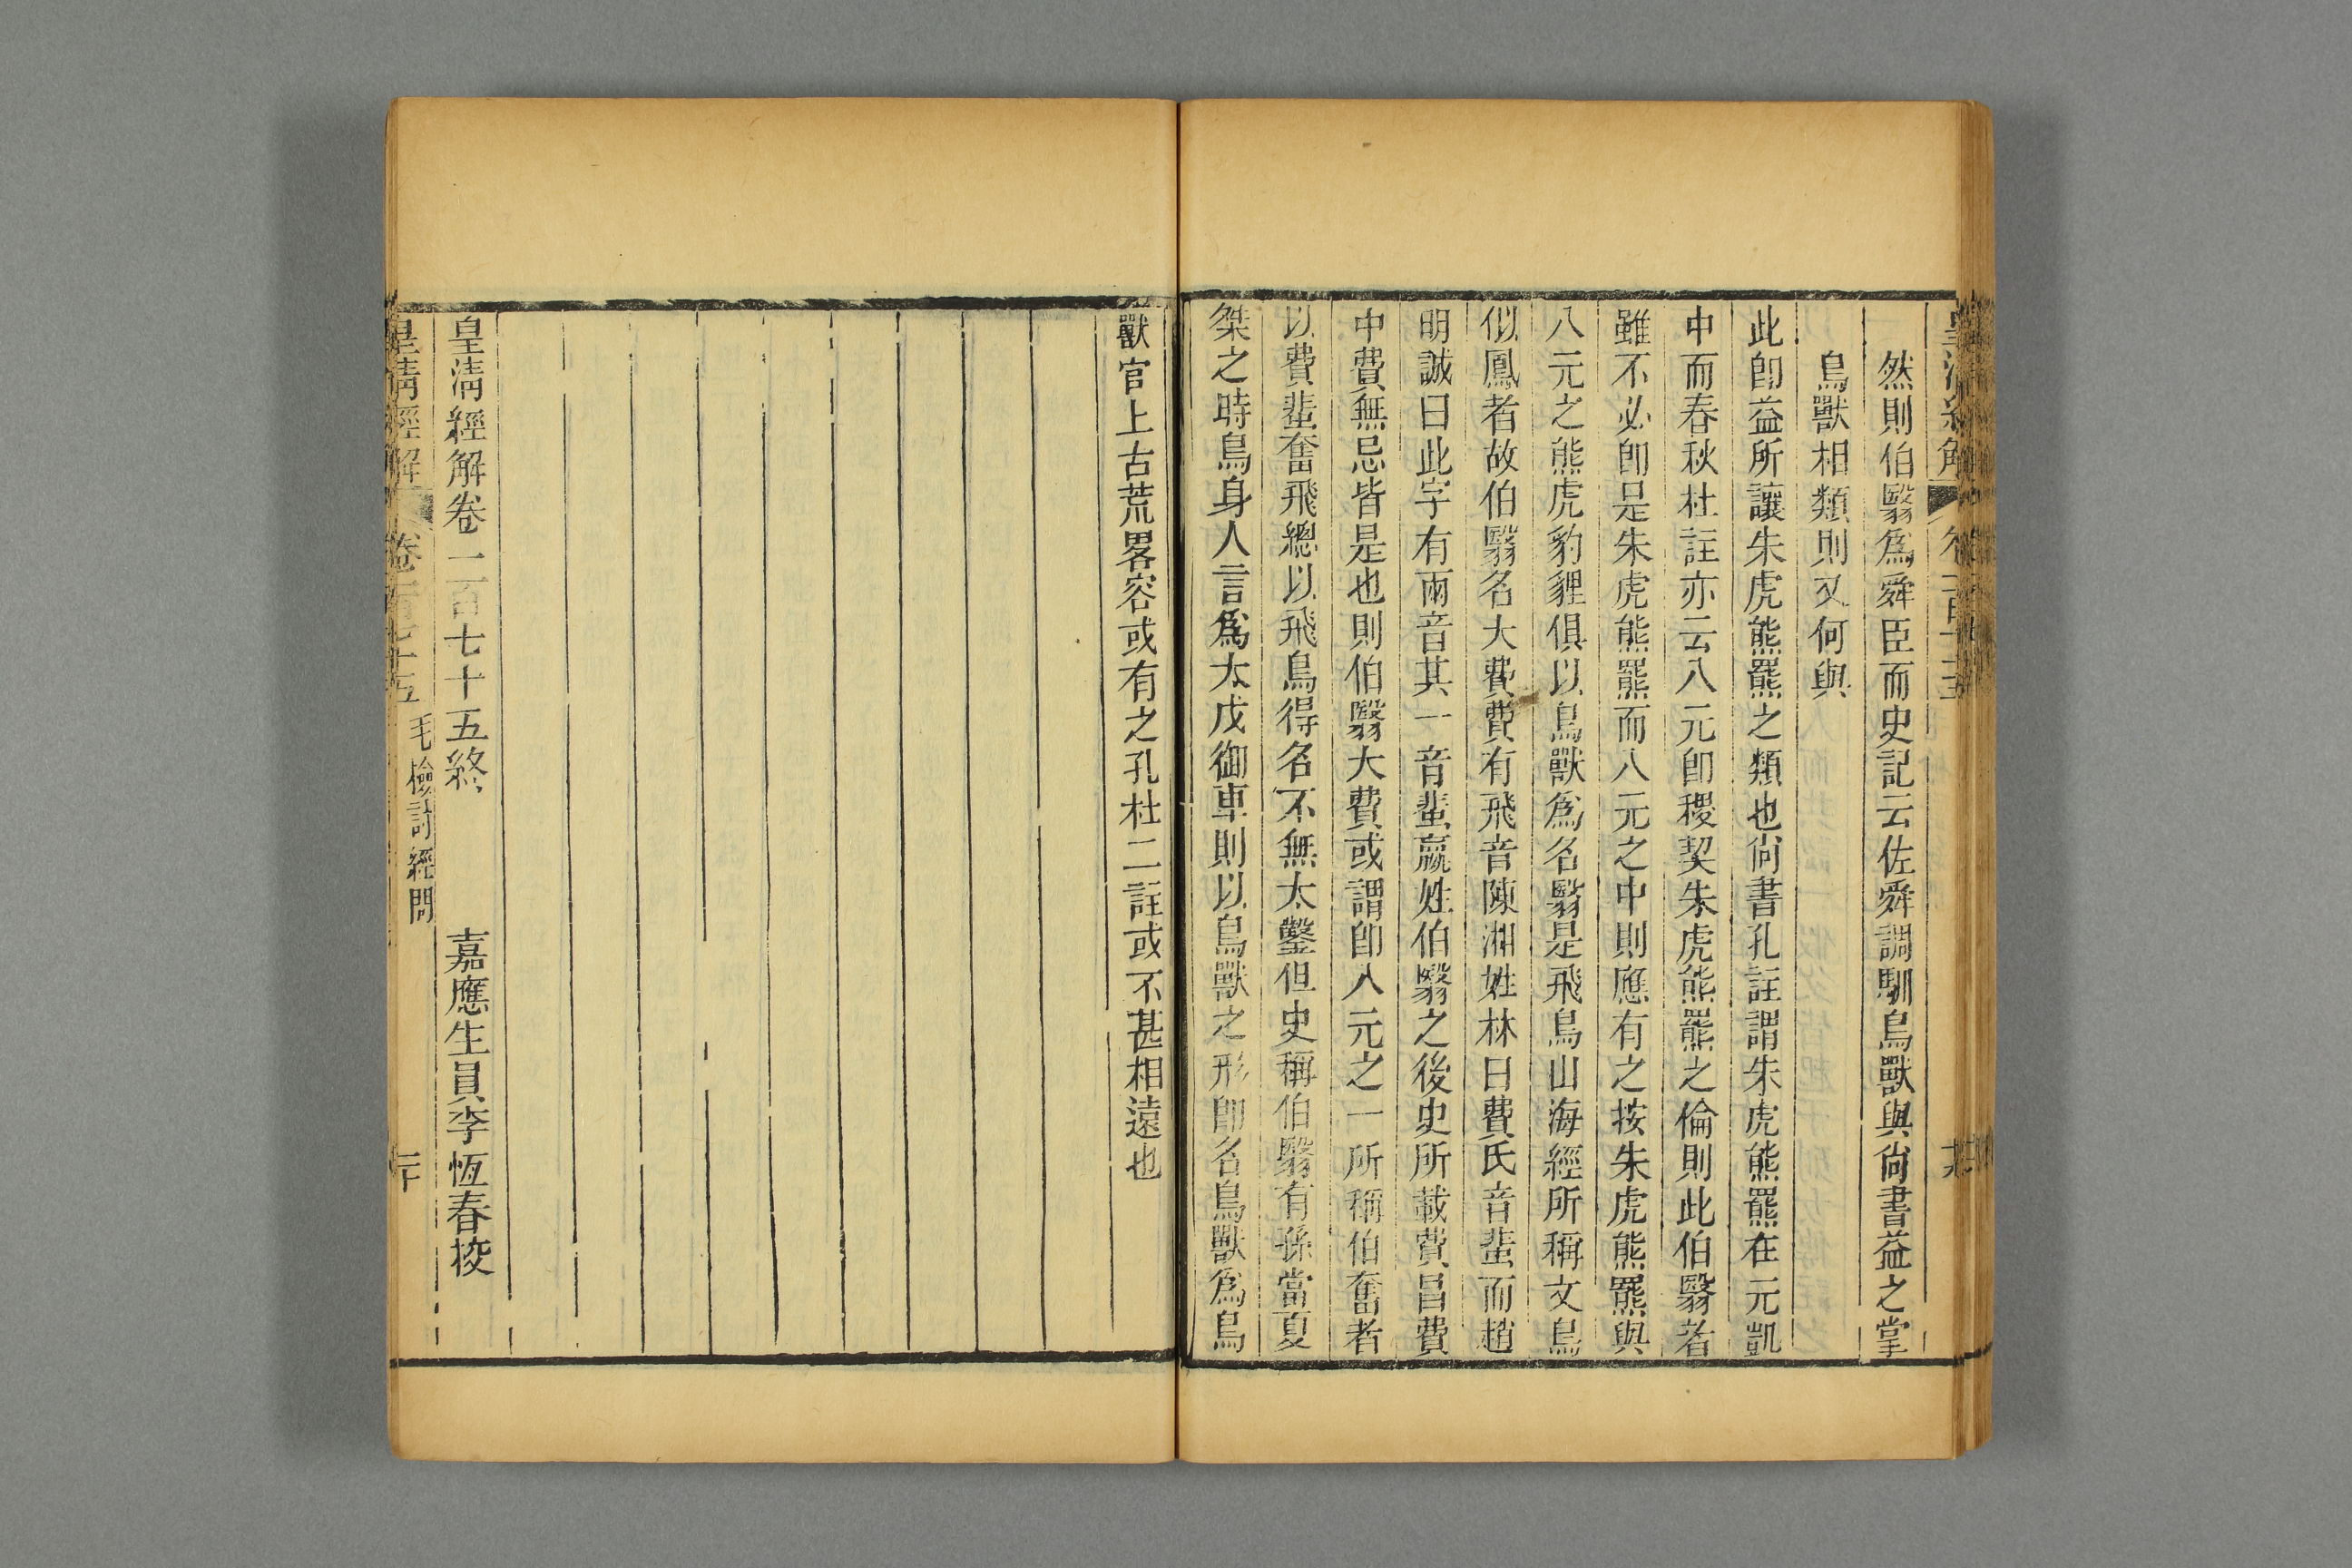 然則伯翳爲舜臣而史記云佐舜調馴鳥獸與尙書益之掌
鳥獸相類則又何與
此卽益所讓朱虎熊羆之類也尙書孔註謂朱虎熊羆在元凱
中而春秋杜註亦云八元卽稷契朱虎熊羆之倫則此伯翳者
雖不必卽是朱虎熊羆而八元之中則應有之按朱虎熊羆與
八元之熊虎豹貍俱以鳥獸爲名翳是飛鳥山海經所稱文鳥
似鳳者故伯翳名大費費有飛音陳湘姓林曰費氏音蜚而趙
明誠曰此字有兩音其一音蜚嬴姓伯翳之後史所載費昌費
中費無忌皆是也則伯翳大費或謂卽八元之一所稱伯奮者
以費蜚奮飛總以飛鳥得名不無太鑿但史稱伯翳有孫當夏
桀之時鳥身人言爲太戊御車則以鳥獸之形卽名鳥獸爲鳥
獸官上古荒畧容或有之孔杜二註或不甚相遠也
皇淸經解卷一百七十五終
嘉應生員李恆春挍
皇淸經解
卷一百七十五
毛檢討經問
二十